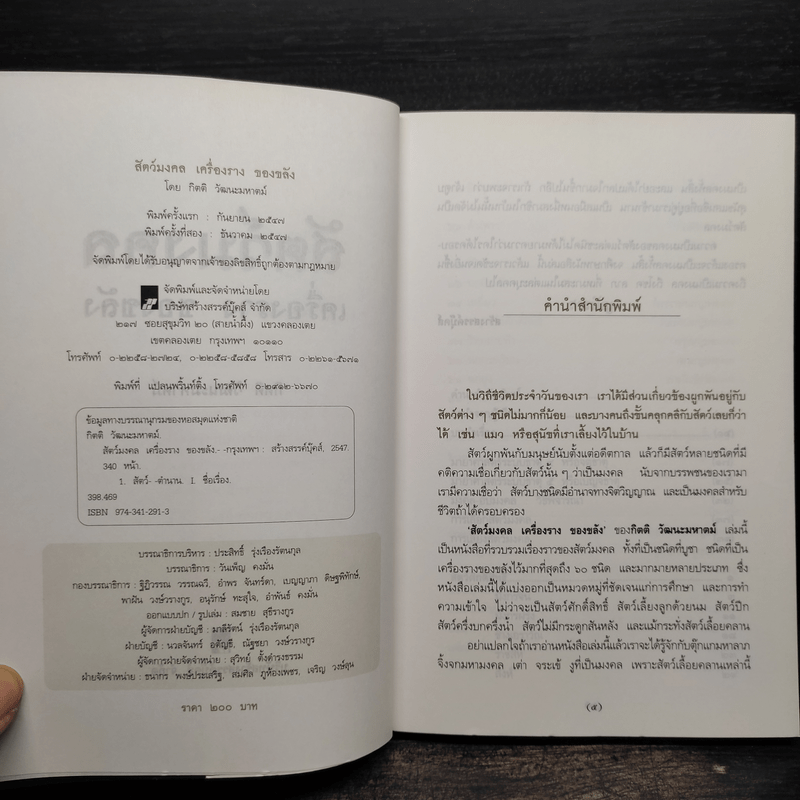 สัตว์มงคล เครื่องราง ของขลัง
โดย กิตติ วัฒนะมหาตม์
พิมพ์ครั้งแรก : กันยายน ๒๕๔๗
พิมพ์ครั้งที่สอง : ธันวาคม ๒๕๔๗
จัดพิมพ์โดยได้รับอนุญาตจากเจ้าของลิขสิทธิ์ถูกต้องตามกฎหมาย
จัดพิมพ์และจัดจำหน่ายโดย
บริษัทสร้างสรรค์บุ๊คส์ จำกัด
๒๑๗ ซอยสุขุมวิท ๒๐ (สายน้ำผึ้ง) แขวงคลองเตย
เขตคลองเตย กรุงเทพฯ ๑๐๑๑๐
โทรศัพท์ ๐-๒๒๕๘-๒๗๒๔, ๐-๒๒๕๘-๕๘๕๘ โทรสาร ๐-๒๒๖๑-๕๖๗๑
พิมพ์ที่ แปลนพริ้นท์ติ้ง โทรศัพท์ ๐-๒๙๑๒-๖๖๗๐
ข้อมูลทางบรรณานุกรมของหอสมุดแห่งชาติ
กิตติ วัฒนะมหาตม์.
สัตว์มงคล เครื่องราง ของขลัง.- -กรุงเทพฯ : สร้างสรรค์บุ๊คส์, 2547.
340 หน้า.
1. สัตว์- -ตำนาน. I. ชื่อเรื่อง.
398.469
ISBN 974-341-291-3
บรรณาธิการบริหาร : ประสิทธิ์ รุ่งเรืองรัตนกุล
บรรณาธิการ : วันเพ็ญ คงมั่น
กองบรรณาธิการ : ฐิฏิวรรณ วรรณฉวี, อำพร จันทร์ดา, เบญญาภา ดิษฐพิทักษ์,
พาฝัน วงษ์วรางกูร, อนุรักษ์ ทะสุใจ, อำพันธ์ คงมั่น
ออกแบบปก / รูปเล่ม : สมชาย สุธีรางกูร
ผู้จัดการฝ่ายบัญชี : มาลีรัตน์ รุ่งเรืองรัตนกุล
ฝ่ายบัญชี : นวลจันทร์ อตัญธี, ณัฐชยา วงษ์วรางกูร
ผู้จัดการฝ่ายจัดจำหน่าย : สุวิทย์ ตั้งดำรงธรรม
ฝ่ายจัดจำหน่าย : ธนากร พงษ์ประเสริฐ, สมศีล ภูห้องเพชร, เจริญ วงษ์ลุน
ราคา ๒๐๐ บาท
คำนำสำนักพิมพ์
ในวิถีชีวิตประจำวันของเรา เราได้มีส่วนเกี่ยวข้องผูกพันอยู่กับ
สัตว์ต่าง ๆ ชนิดไม่มากก็น้อย และบางคนถึงขั้นคลุกคลีกับสัตว์เลยก็ว่า
ได้ เช่น แมว หรือสุนัขที่เราเลี้ยงไว้ในบ้าน
สัตว์ผูกพันกับมนุษย์นับตั้งแต่อดีตกาล แล้วก็มีสัตว์หลายชนิดที่มี
คติความเชื่อเกี่ยวกับสัตว์นั้น ๆ ว่าเป็นมงคล นับจากบรรพชนของเรามา
เรามีความเชื่อว่า สัตว์บางชนิดมีอำนาจทางจิตวิญญาณ และเป็นมงคลสำหรับ
ชีวิตถ้าได้ครอบครอง
‘สัตว์มงคล เครื่องราง ของขลัง’ ของกิตติ วัฒนะมหาตม์ เล่มนี้
เป็นหนังสือที่รวบรวมเรื่องราวของสัตว์มงคล ทั้งที่เป็นชนิดที่บูชา ชนิดที่เป็น
เครื่องรางของขลังไว้มากที่สุดถึง ๖๐ ชนิด และมากมายหลายประเภท ซึ่ง
หนังสือเล่มนี้ได้แบ่งออกเป็นหมวดหมู่ที่ชัดเจนแก่การศึกษา และการทำ
ความเข้าใจ ไม่ว่าจะเป็นสัตว์ศักดิ์สิทธิ์ สัตว์เลี้ยงลูกด้วยนม สัตว์ปีก
สัตว์ครึ่งบกครึ่งน้ำ สัตว์ไม่มีกระดูกสันหลัง และแม้กระทั่งสัตว์เลื้อยคลาน
อย่าแปลกใจถ้าเราอ่านหนังสือเล่มนี้แล้วเราจะได้รู้จักกับตุ๊กแกมหาลาภ
จิ้งจกมหามงคล เต่า จระเข้ งูที่เป็นมงคล เพราะสัตว์เลื้อยคลานเหล่านี้
(๕)